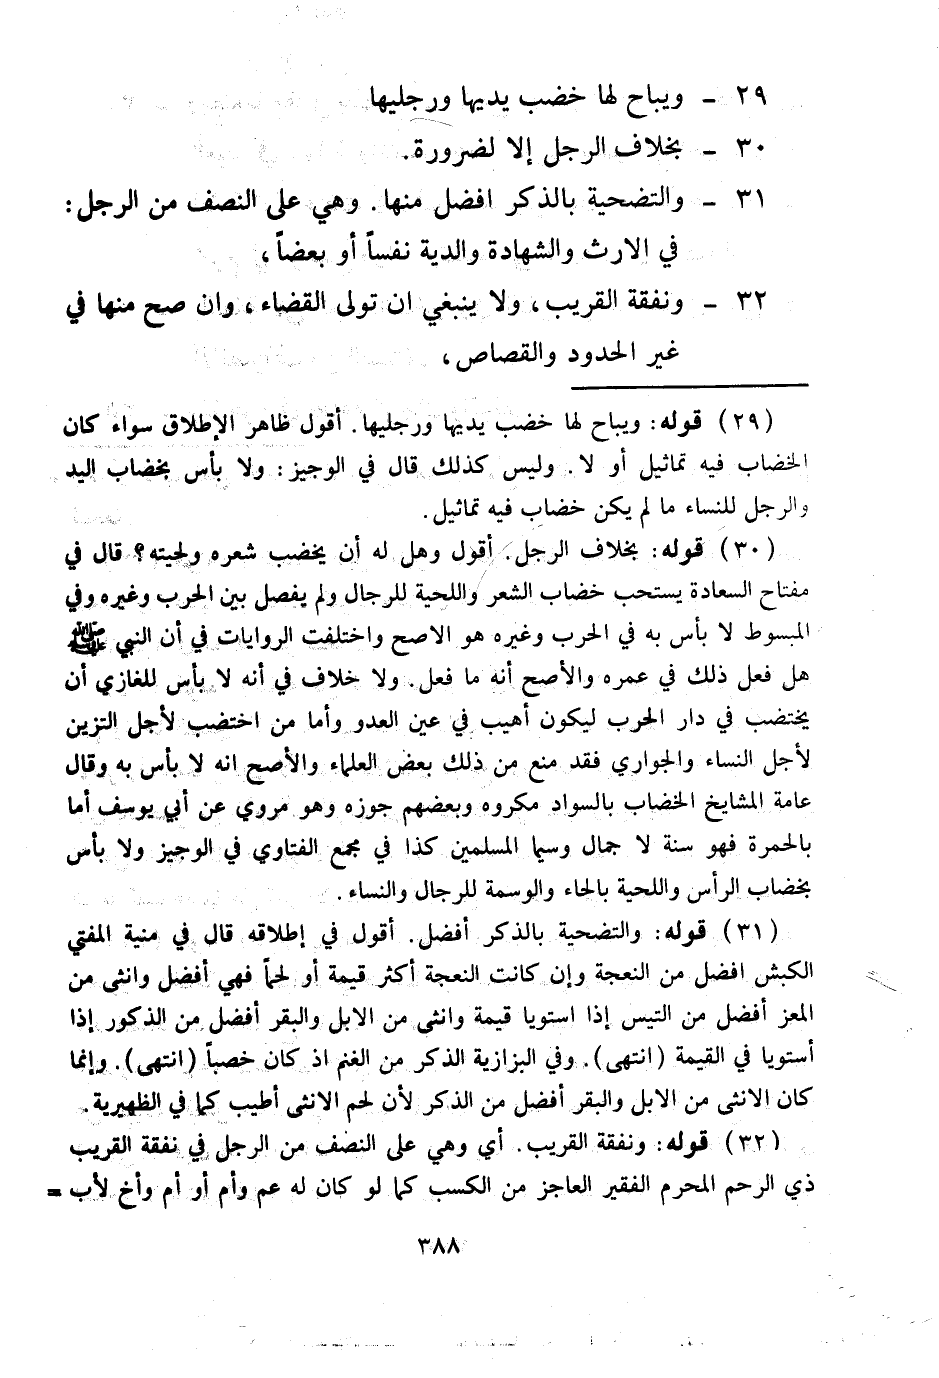 ٢٩ - ويباح لها خضب يديها ورجليها
٣٠ - بخلاف الرجل إلا لضرورة.
٣١ - والتضحية بالذكر افضل منها. وهي على النصف من الرجل:
في الارث والشهادة والدية نفساً أو بعضاً،
٣٢ - ونفقة القريب، ولا ينبغي ان تولى القضاء، وان صح منها في
غير الحدود والقصاص،
(٢٩) قوله: ويباح لها خضب يديها ورجليها. أقول ظاهر الإطلاق سواء كان
الخضاب فيه تماثيل أو لا. وليس كذلك قال في الوجيز: ولا بأس بخضاب اليد
والرجل للنساء ما لم يكن خضاب فيه تماثيل.
(٣٠) قوله: بخلاف الرجل. أقول وهل له أن يخضب شعره ولحيته؟ قال في
مفتاح السعادة يستحب خضاب الشعر واللحية للرجال ولم يفصل بين الحرب وغيره وفي
المبسوط لا بأس به في الحرب وغيره هو الاصح واختلفت الروايات في أن النبي ﷺ
هل فعل ذلك في عمره والأصح أنه ما فعل. ولا خلاف في أنه لا بأس للغازي أن
يختضب في دار الحرب ليكون أهيب في عين العدو وأما من اختضب لأجل التزين
لأجل النساء والجواري فقد منع من ذلك بعض العلماء والأصح انه لا بأس به وقال
عامة المشايخ الخضاب بالسواد مكروه وبعضهم جوزه وهو مروي عن أبي يوسف أما
بالحمرة فهو سنة لا جمال وسيما المسلمين كذا في مجمع الفتاوي في الوجيز ولا بأس
بخضاب الرأس واللحية بالحاء والوسمة للرجال والنساء.
(٣١) قوله: والتضحية بالذكر أفضل. أقول في إطلاقه قال في منية المفتي
الكبش افضل من النعجة وإن كانت النعجة أكثر قيمة أو لحماً فهي أفضل وانثى من
المعز أفضل من التيس إذا استويا قيمة وانثى من الابل والبقر أفضل من الذكور إذا
أستويا في القيمة (انتهى). وفي البزازية الذكر من الغنم اذ كان خصباً (انتهى). وإنما
كان الانثى من الابل والبقر أفضل من الذكر لأن لحم الانثى أطيب كما في الظهيرية.
(٣٢) قوله: ونفقة القريب. أي وهي على النصف من الرجل في نفقة القريب
ذي الرحم المحرم الفقير العاجز من الكسب كما لو كان له عم وأم أو أم وأخ لأب =
٣٨٨